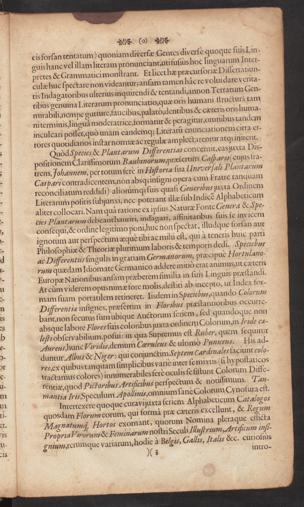 (o)
tis forsan tentatum) quoniam diversæ Gentes diversè quoque suis Lin-
guis hanc vel illam literam pronunciant, ut fusius hoc linguarum Inter-
pretes & Grammatici monstrant. Et licet hæ præcursoriæ Dissertatiun-
culæ huc spectare non videantur: ansam tamen hâc re voluì dare verita-
tis Indagatoribus ulterius inquirendi & tentandi, annon Tertatum Gen-
tibus genuina Literarum pronunciatio, quæ oris humani structurâ tam
mirabili, nempe gutture, faucibus, palato, dentibus & cæteris oris huma-
ni terminis, linguâ moderatrice, formatur & peragitur, omnibus tandem
inculcari posset, quò unam eandemq; Literarū enunciationem certa er-
rores quosdam instar normæ ac regulæ amplecterentur atq; impertirent.
Quòd Species & Plantarum Differentias concernit, eas juxta Dis-
positionem Clarissimorum Bauhinorum, præsertim Caspari; cujus fra-
trem, Johannem, per totum ferè in Historia sua Universali Plantarum
Caspari contradicentem, non abs insigni opera cum Fratre tanquam
reconciliatum reddidi) aliorumq; sub quasi Generibus juxta Ordinem
Literarum positis subjunxi, nec poterant illæ sub Indice Alphabeticum
aliter collocari. Nam quâ ratione ex justo Naturæ Fonte Genera & Spe-
cies Plantarum debeant hauriri, indigari, affinitatibus suis se invicem
consequi, & ordine legitimo poni, huc non spectat, illudque forsan aut
ignotum aut perspectum æquè tibi ac mihi est, qui à teneris huic parti
Philosophiæ & Theoriæ plurimum laboris & temporis dedi. Speciebus
ac Differentiis singulis in gratiam Germanorum, præcipuè Hortulano-
rum quædam Idiomate Germanico addere initiò erat animus, ut cæteris
Europæ Nationibus ansam præberem similia in suis Linguis præstandi.
At cùm viderem opus nimiæ fore molis, destiti ab incepto, ut Index for-
mam suam portatilem retineret. Iisdem in Speciebus, quando Colorum
Differentiæ insignes, præsertim in Floribus præstantioribus occurre-
bant, non secutus sum ubique Auctorum seriem, sed quandoque non
absque labore Flores suis coloribus juxta ordinem Colorum, in Iride cœ-
lesti observabilium, posui: in qua Supremus est Ruber, quem sequitur
Aureus, hunc Viridis, demum Cæruleus & ultimò Puniceus. His ad-
duntur, Albus & Niger: qui conjunctim Septem Cardinales faciunt colo-
res, ex quibus tanquam simplicibus variè inter se mixtis (si hypostaticos
tractamus colores) innumerabiles ferè oculis se sistunt Colorum Diffe-
rentiæ, quod Pictoribus Artificibus perspectum & notissimum.
mantis Iris Speculum Apollinis, omnium sanè Colorum Cynosura est.
Intertexere quoque curavi juxta seriem Alphabeticum Catalogos
quosdam Florum eorum, qui formâ præ cæteris excellunt, & Regum
Magnatumq; Hortos exornant, quorum Nomina pleraque efficta
Propria Virorum & Fœminarum nostri Seculi Illustrium, Artificum insi-
gnium, rerumque variarum, hodie à Belgis, Gallis, Italis &c. curiosius
)( 3
intro-